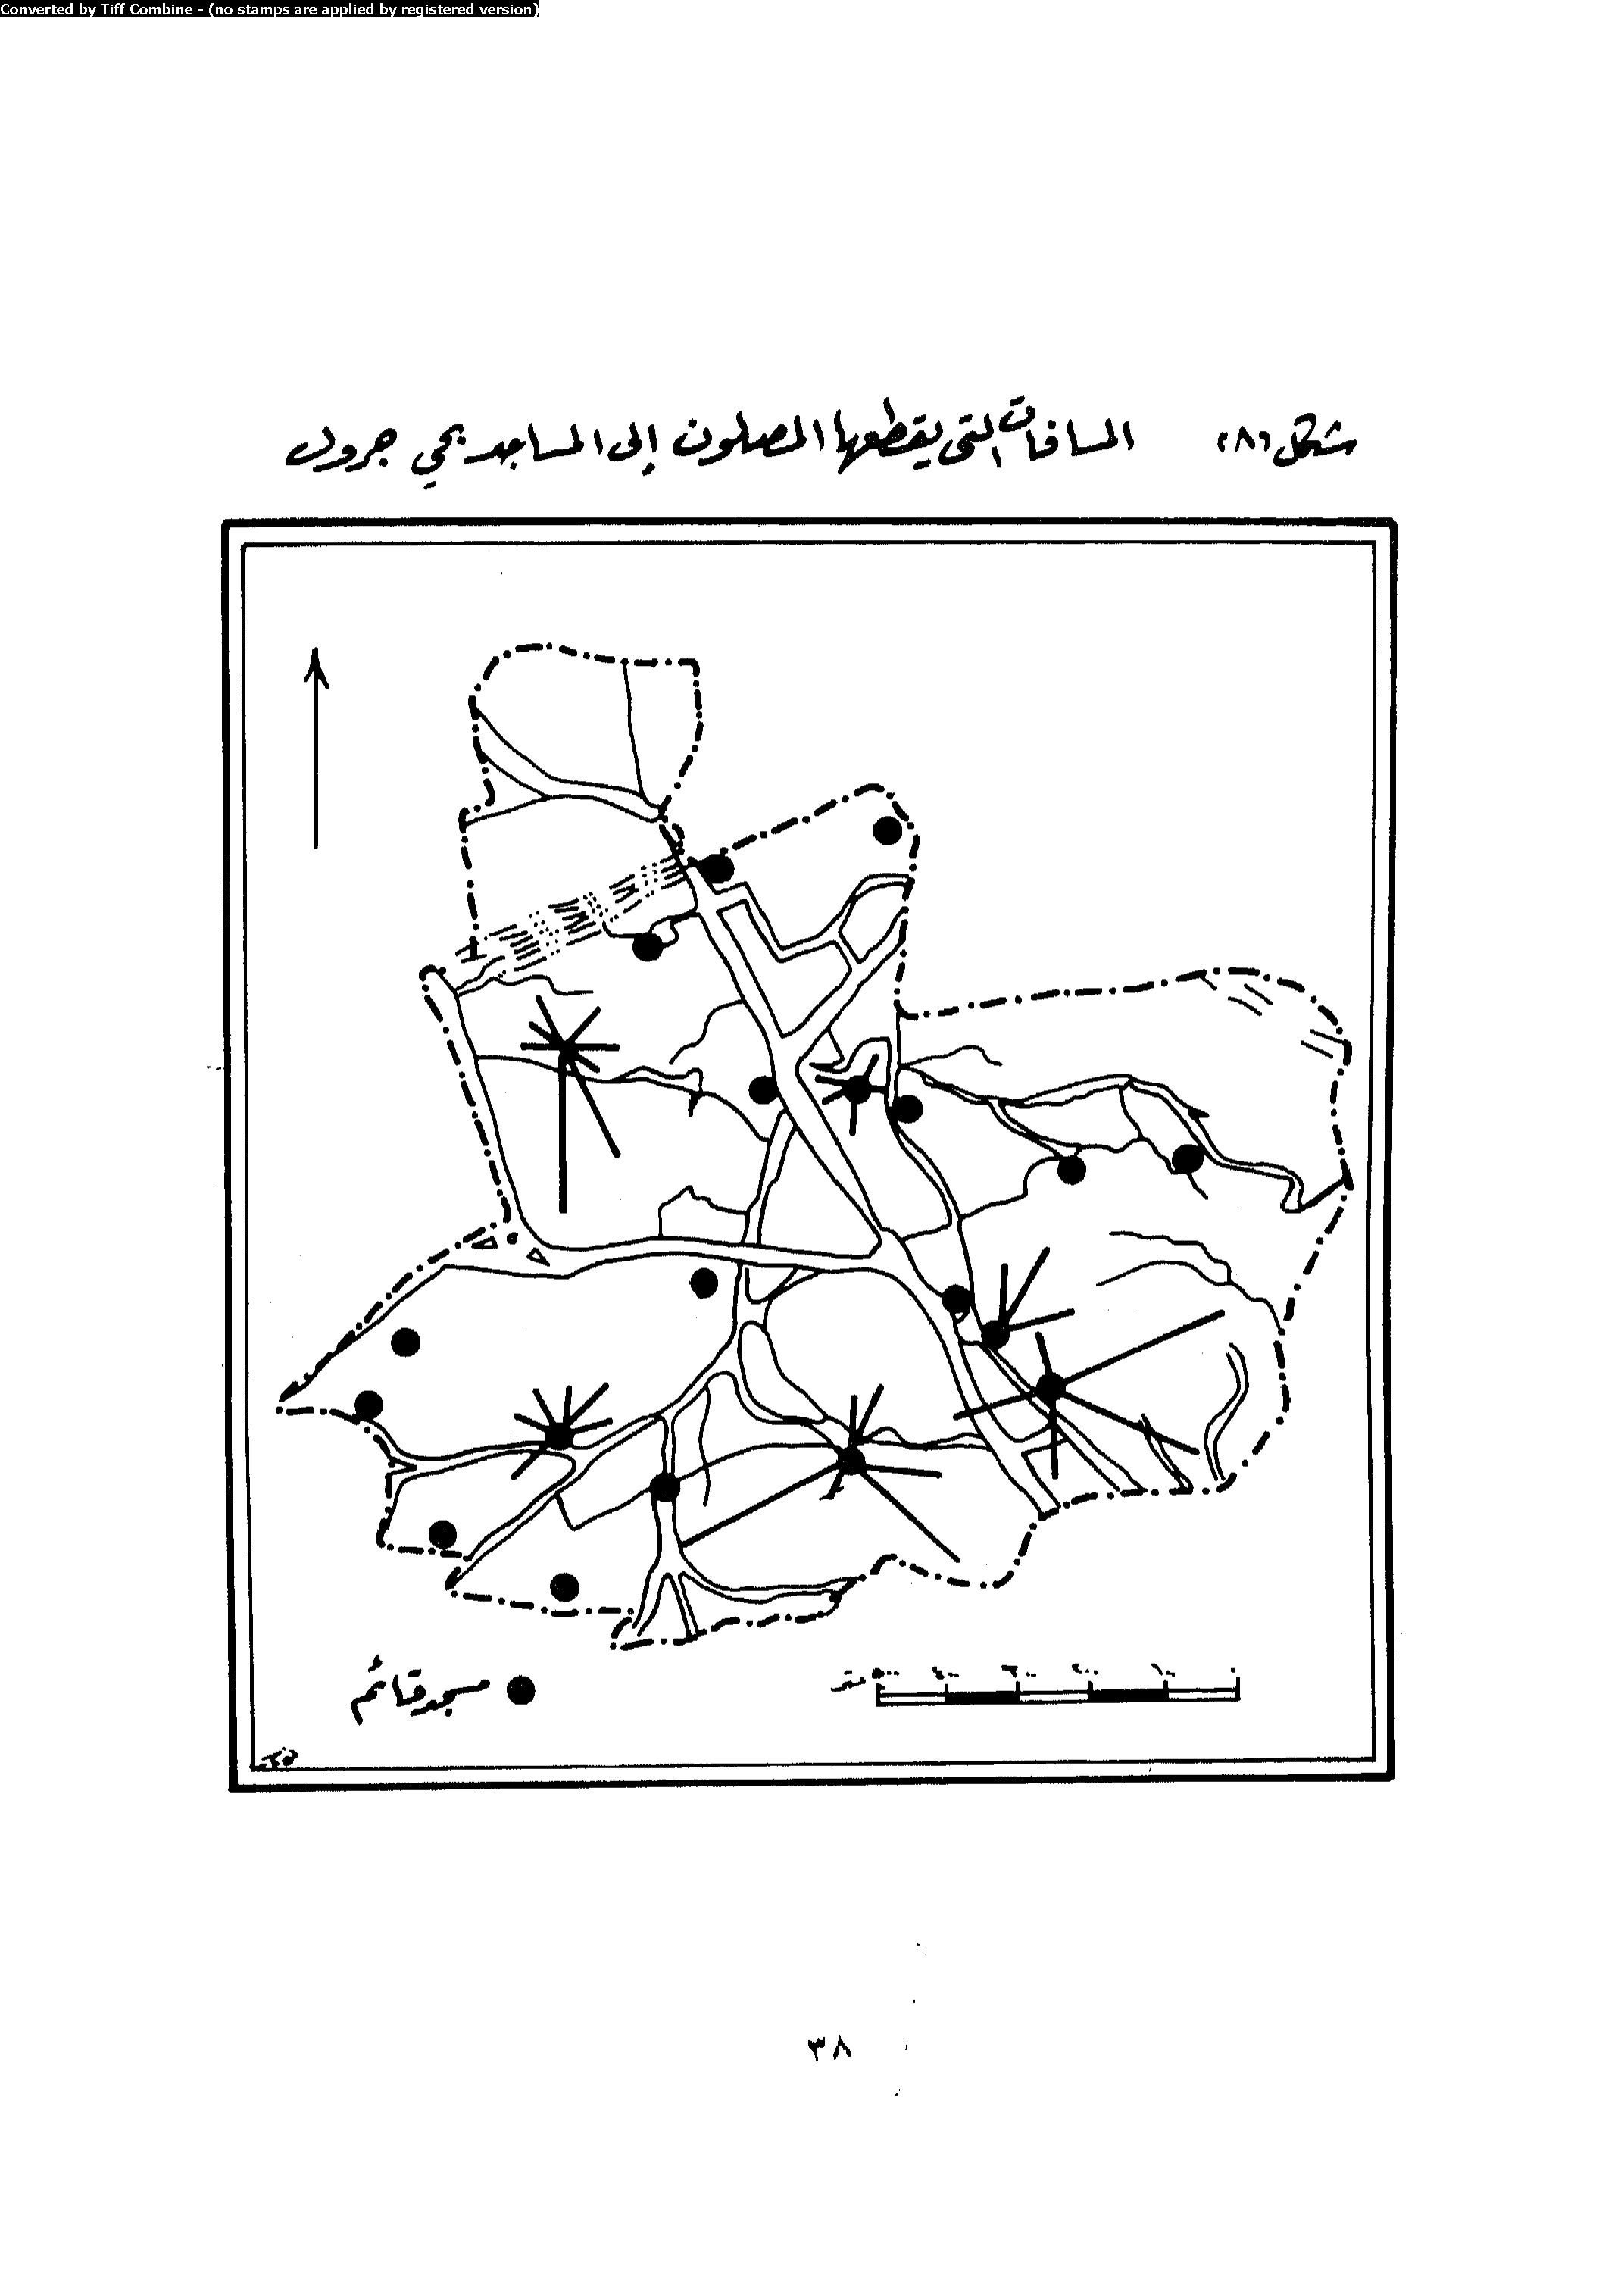 Converted by Tiff Combine - (no stamps are applied by registered version)
شكل (٨) المسافات التي يقطعها المصلون إلى المساجد بحي جرول
٥٠٠ ٤٠٠ ٣٠٠ ٢٠٠ ١٠٠ ٠ متر
مسجد قائم
٣٨